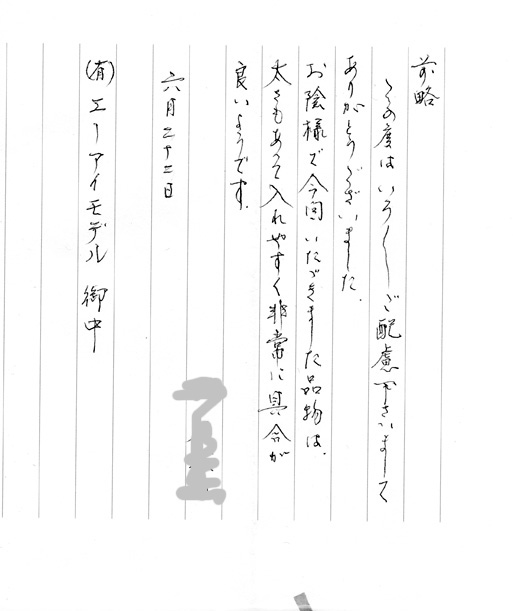 前略
この度はいろ〳〵ご配慮下さいまして
ありがとうございました。
お陰様で今回いただきました品物は、
太さもあって入れやすく非常に具合が
良いようです。
六月二十二日
(有)エーアイモデル 御中